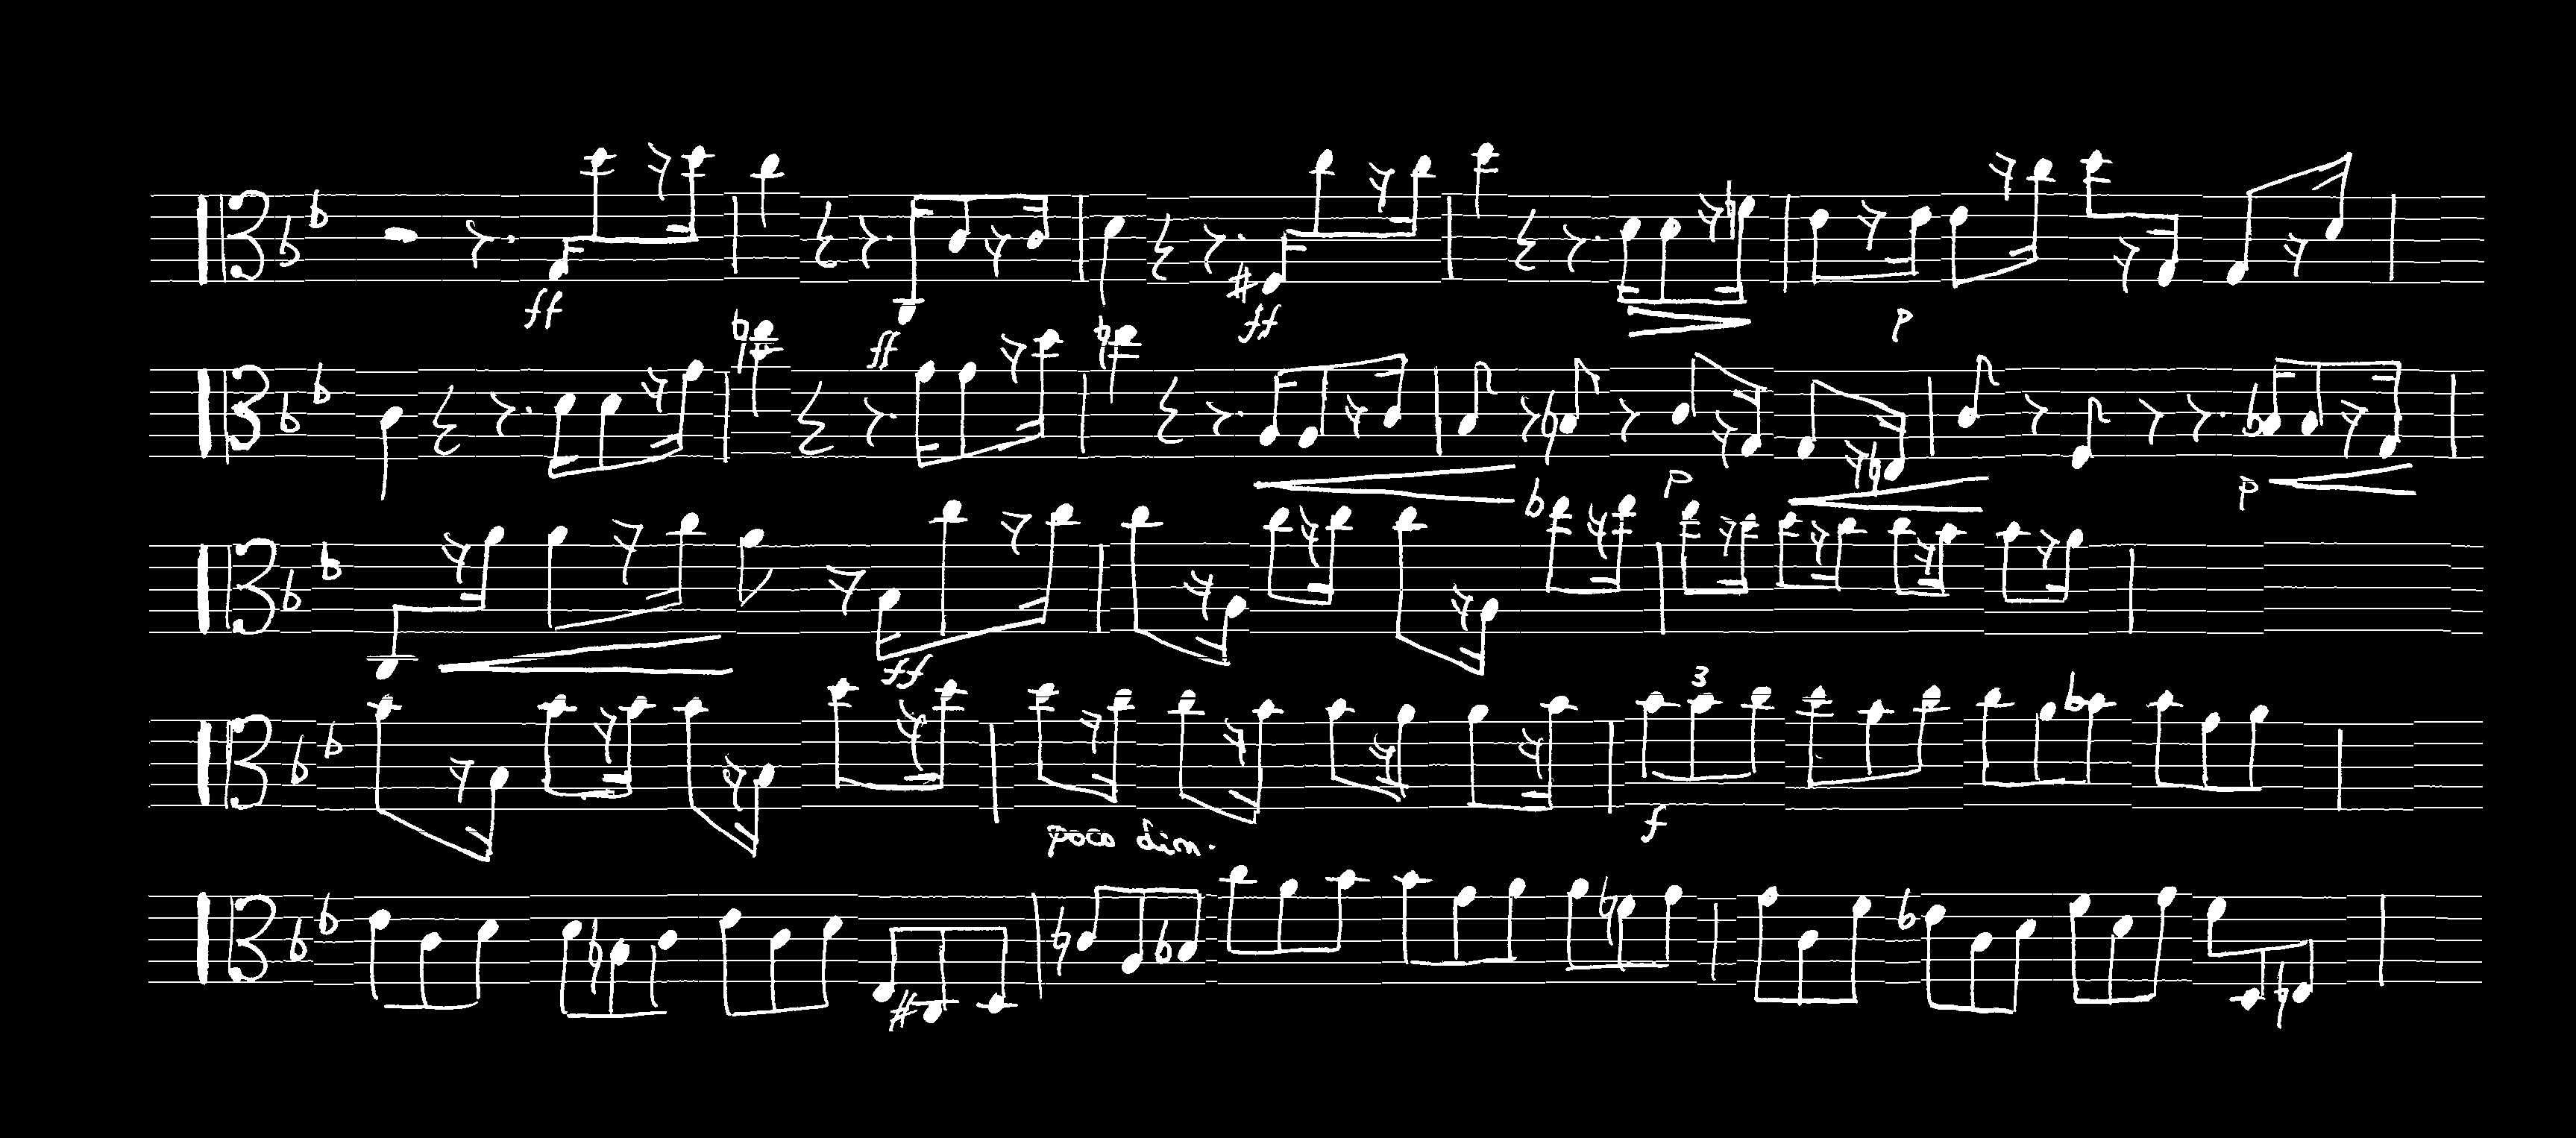 ff ff ff p
p p
ff
3
poco dim. f